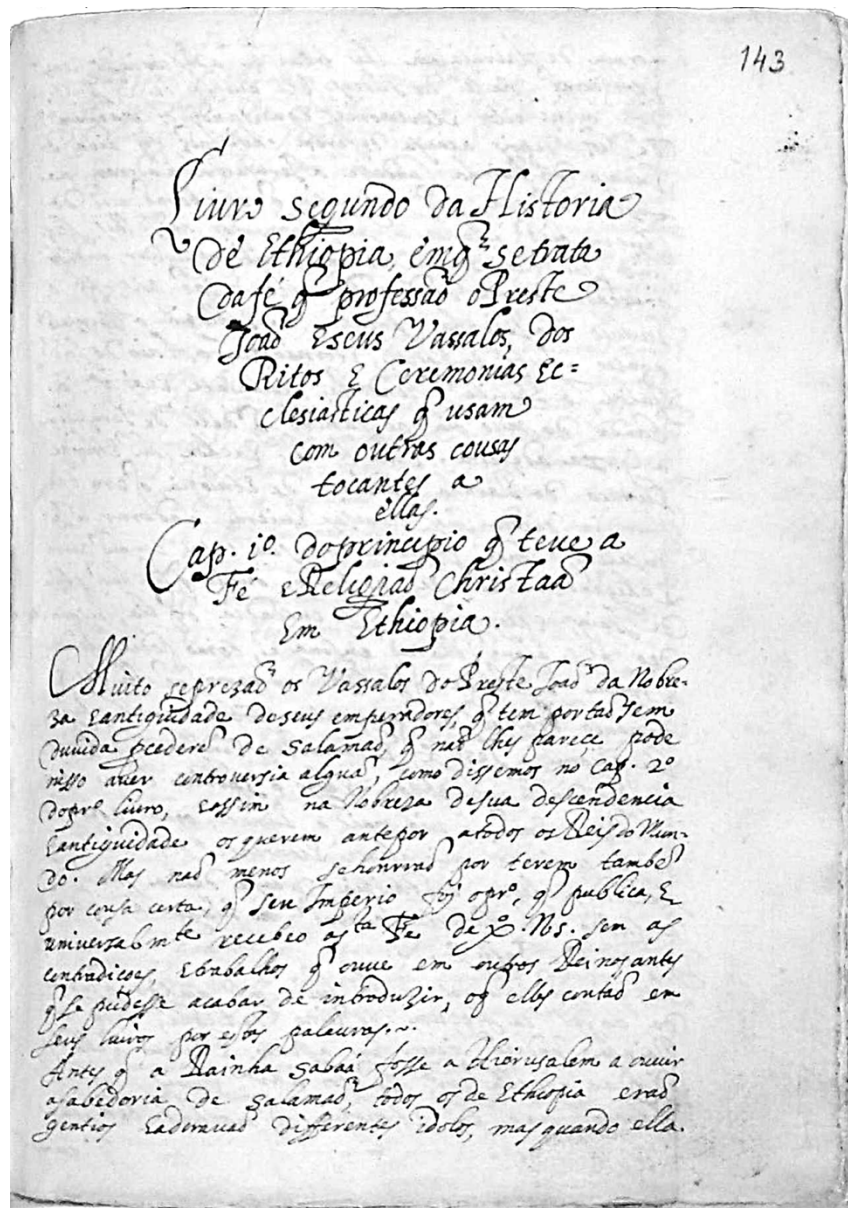 143
Livro segundo da Historia
de Ethiopia, emq̃ se trata
da fé q̃ professaõ o Preste
Joaõ E seus Vassalos, dos
Ritos E Ceremonias Ec=
clesiasticas q̃ usam
com outras cousas
tocantes a
ellas.
Cap. 1º. do principio q̃ teue a
Fé e Religiaõ Christaã
Em Ethiopia.
Muito se prezaõ os Vassalos do Preste Joaõ da Nobre-
za E antiguidade de seus emperadores, q̃ tem por taõ sem
duuida pcederẽ de Salamaõ, q̃ naõ lhes parece pode
nisso auer controversia algũa, como dissemos no Cap. 2º
do prº livro, E assim na Nobreza de sua descendencia
E antiguidade os querem antepor a todos os Reis do Mun-
do. Mas naõ menos se honrraõ por terem tambẽ
por cousa certa, q̃ seu Imperio foj o prº, q̃ publica, E
universalmte recebeo a sta Fé de Xº. Ns. sem as
contradições, E trabalhos q̃ ouve em outros Reinos antes
q̃ se pudesse acabar de introduzir, o q̃ elles contaõ em
seus liuros por estas palauras.~.
Antes q̃ a Rainha Sabaá fosse a Hierusalem a ouvir
a sabedoria de Salamaõ, todos os de Ethiopia eraõ
gentios E adorauaõ differentes idolos, mas quando ella.